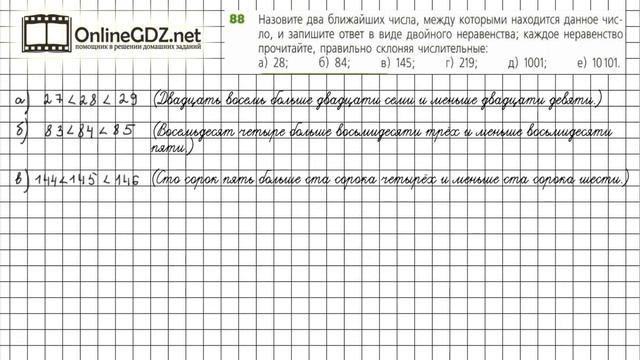 OnlineGDZ.net
помощник в решении домашних заданий
88 Назовите два ближайших числа, между которыми находится данное чис-
ло, и запишите ответ в виде двойного неравенства; каждое неравенство
прочитайте, правильно склоняя числительные:
а) 28; б) 84; в) 145; г) 219; д) 1001; е) 10101.
а) 27 < 28 < 29 (Двадцать восемь больше двадцати семи и меньше двадцати девяти.)
б) 83 < 84 < 85 (Восемьдесят четыре больше восьмидесяти трёх и меньше восьмидесяти
пяти.)
в) 144 < 145 < 146 (Сто сорок пять больше ста сорока четырёх и меньше ста сорока шести.)